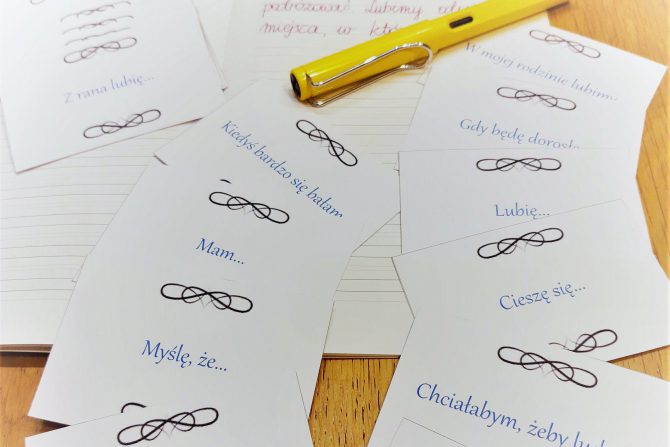 podróżować. Lubimy
miejsca, w
Z rana lubię...
W mojej rodzinie lubimy
Gdy będę
Kiedyś bardzo się bałam
Lubię...
Mam...
Cieszę się...
Myślę, że...
Chciałabym, żeby